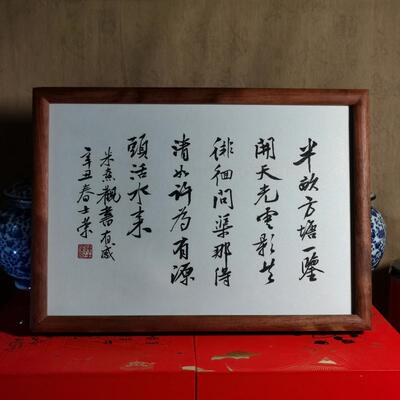 半畝方塘一鑒
開天光雲影共
徘徊問渠那得
清如許為有源
頭活水來
朱熹觀書有感
辛丑春士荣